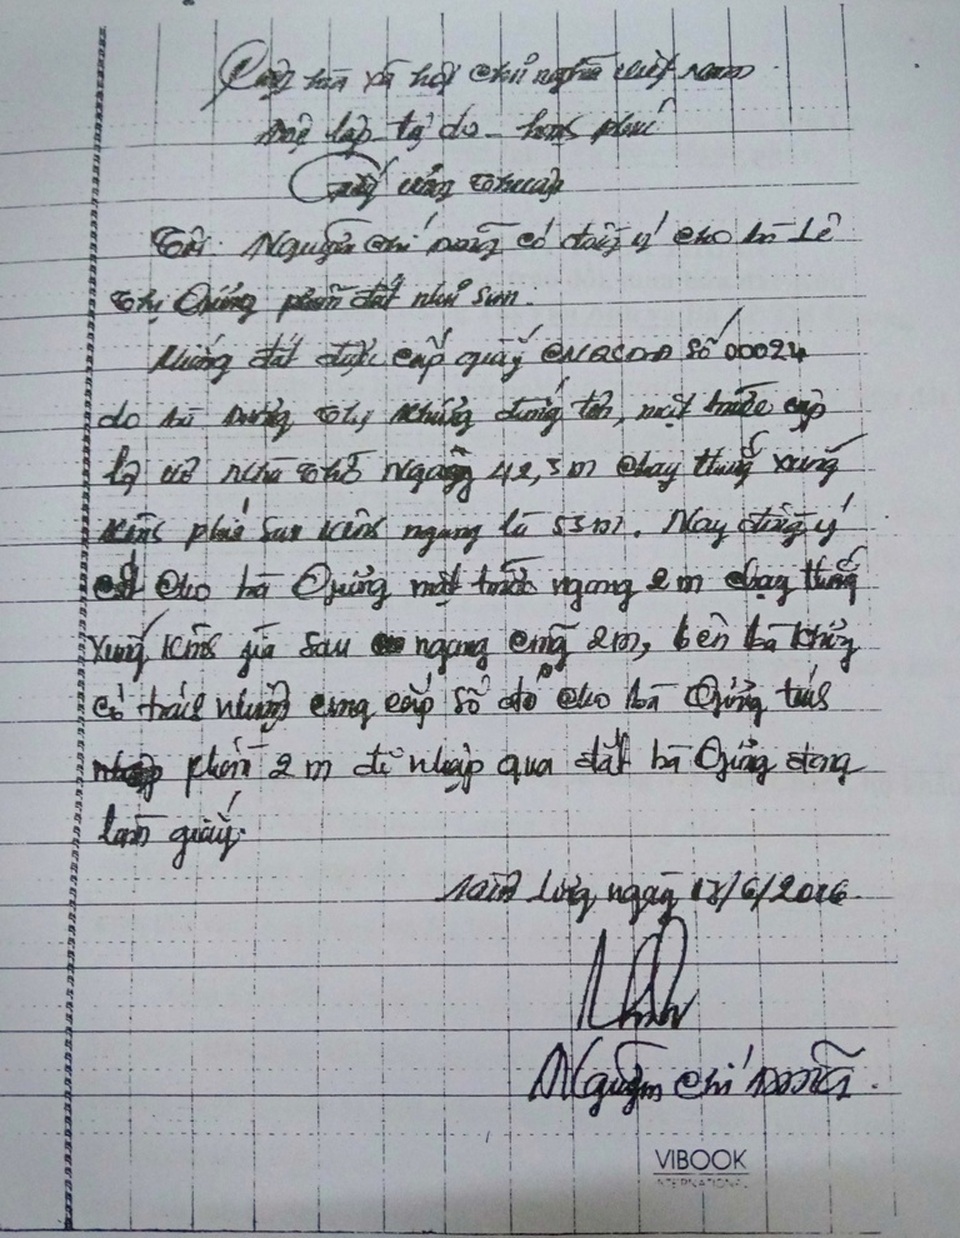 Cộng hòa xã hội chủ nghĩa việt nam
Độc lập tự do - hạnh phúc
Giấy ưng thuận
Tôi: Nguyễn chí có đồng ý cho bà Lê
Thị Quảng phần đất như sau.
Miếng đất được cấp giấy CNQSDĐ Số 00024
do bà Dương Thị Khứng đứng tên, mặt trước cặp
lộ về nhà thờ Ngang 42,3m chạy thẳng xuống
kinh phía sau kinh ngang là 53m. Nay đồng ý
cho bà Quảng mặt trước ngang 2m chạy thẳng
xuống kinh phía sau ngang cũng 2m, bên bà Khứng
có trách nhiệm cung cấp sổ đỏ cho bà Quảng tách
phần 2m để nhập qua đất bà Quảng đang
làm giấy.
ngày 18/6/2016
Nguyễn chí
VIBOOK
INTERNATIONAL